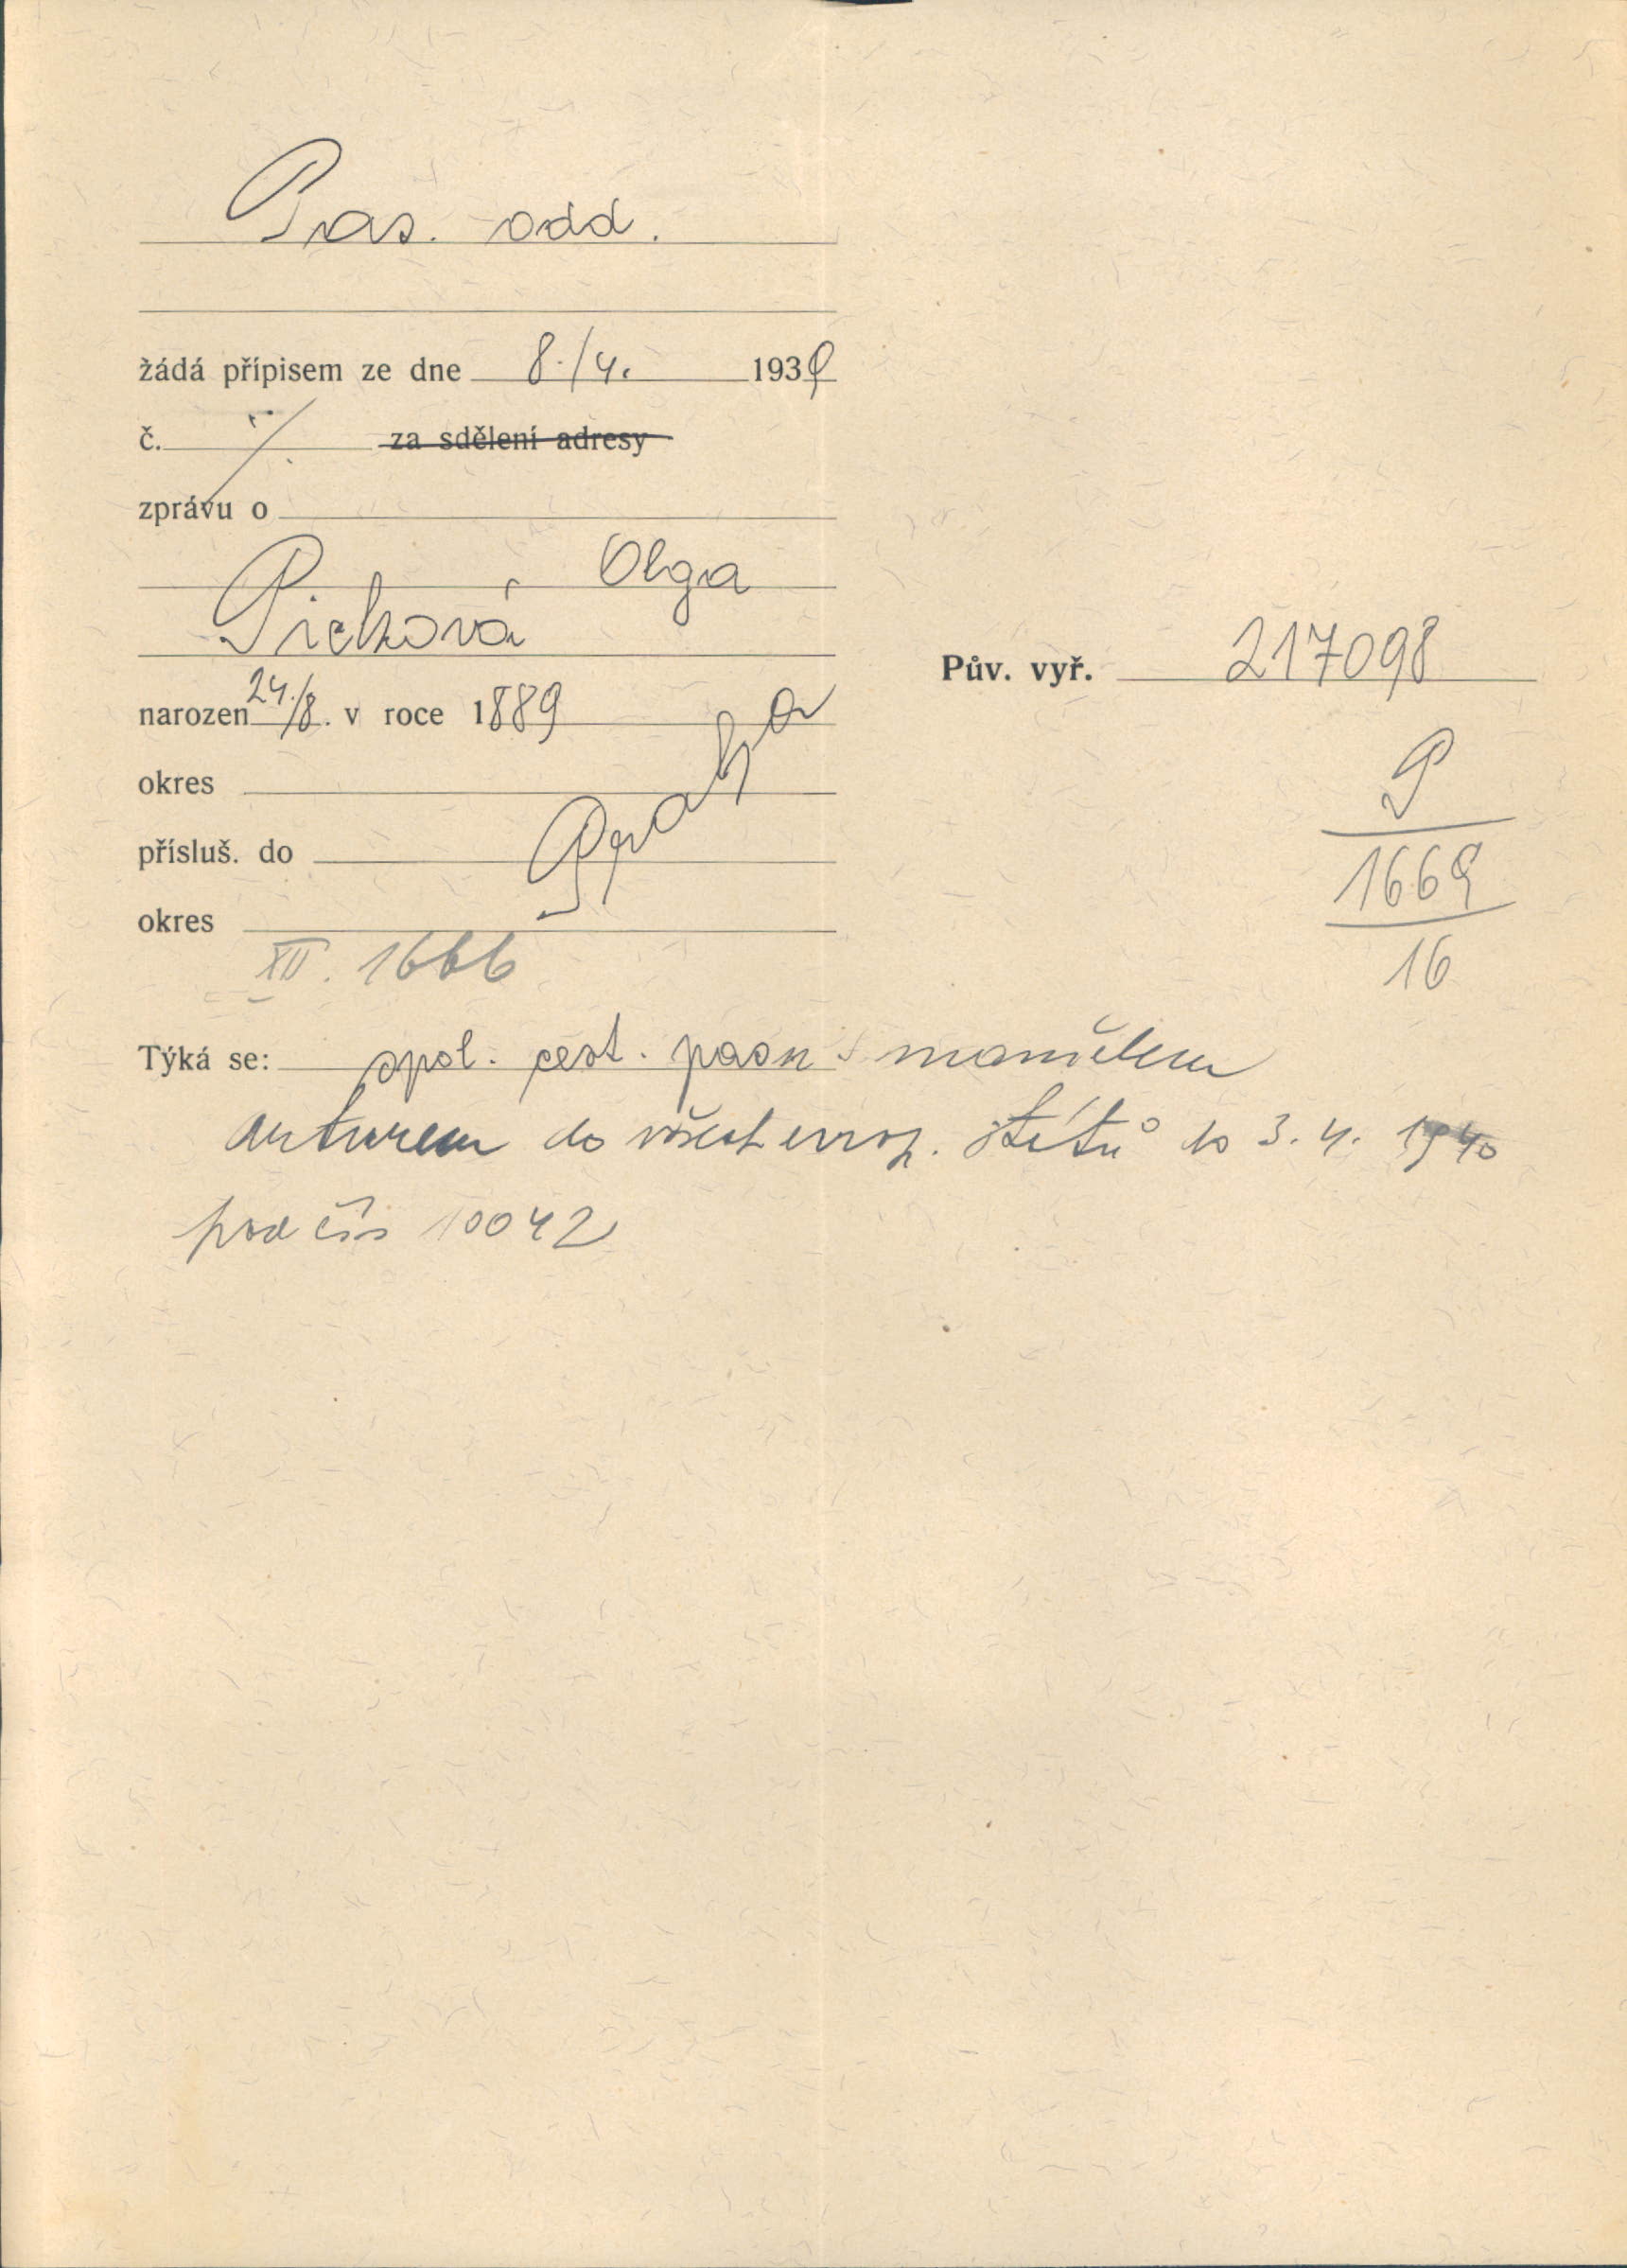 Pas. odd.
žádá přípisem ze dne 8./4. 1939
č. /. za sdělení adresy
zprávu o
Olga
Picková
narozen 24./8. v roce 1889
okres
Praha
přísluš. do
okres
XII. 1666
Pův. vyř. 217098
P
1669
16
Týká se: spol. cest. pasu s manželem
Arturem do všech evrop. států do 3. 4. 1940
pod čís 10042